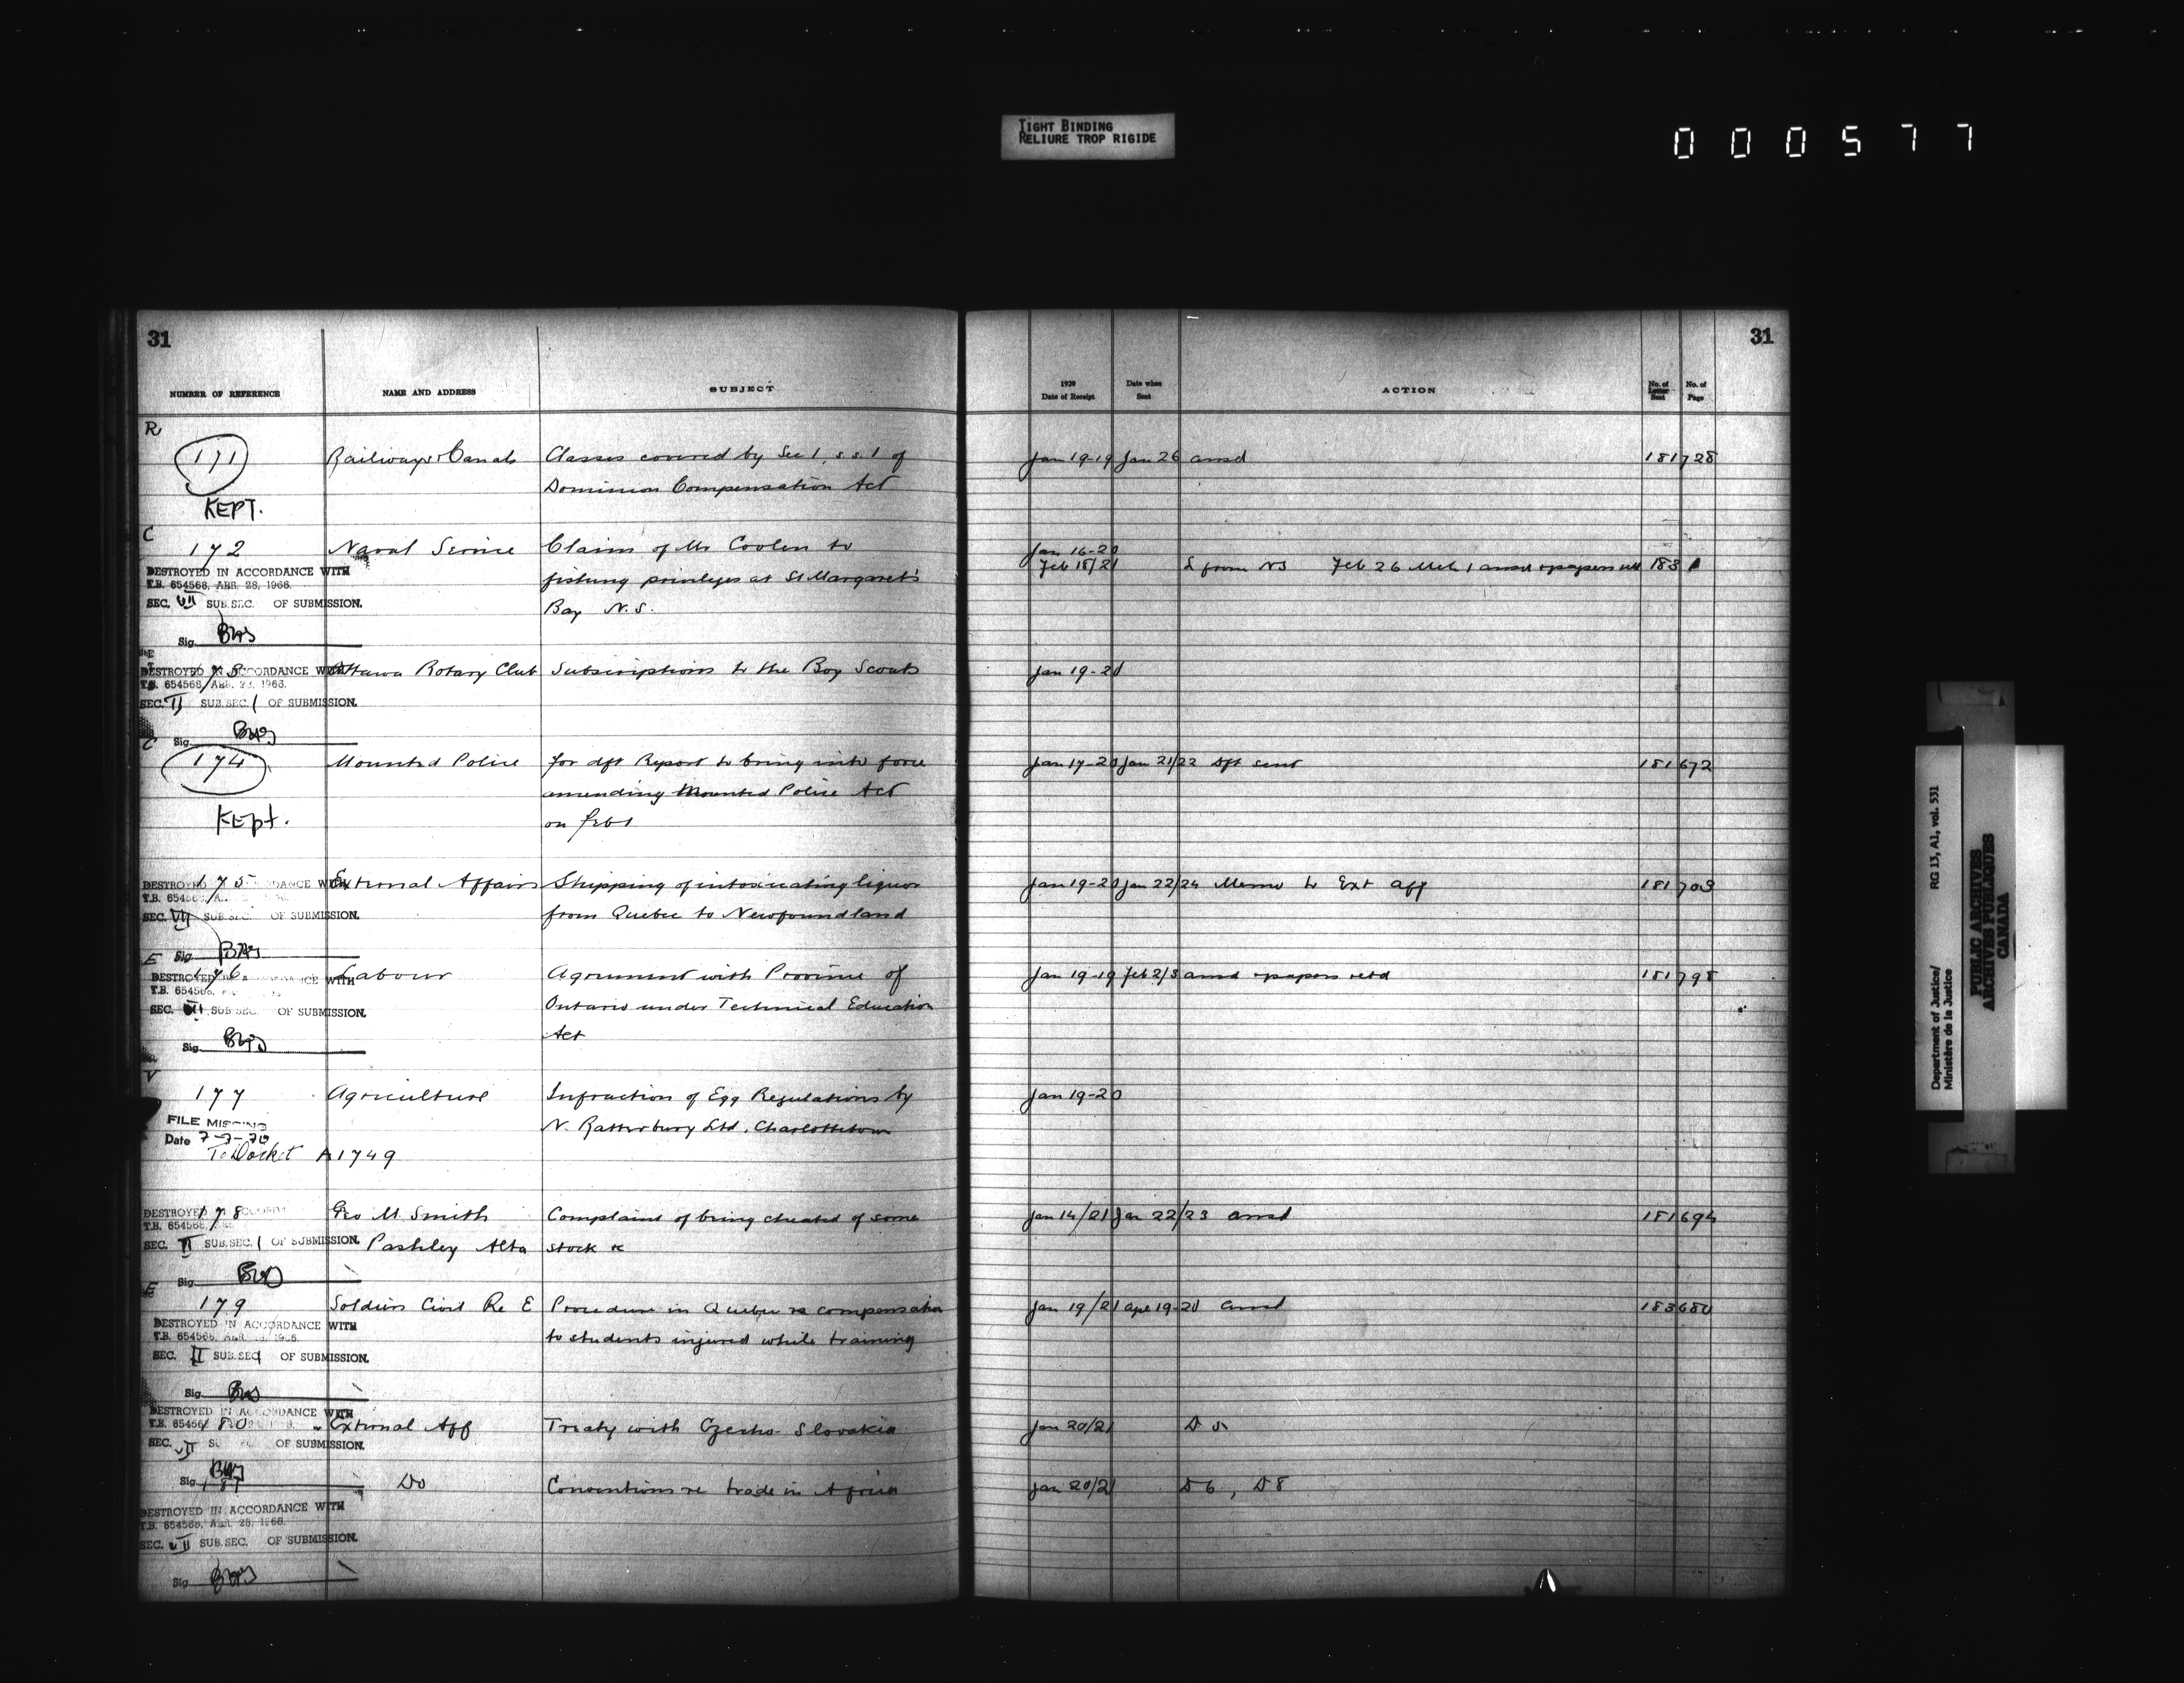 TIGHT BINDING
RELIURE TROP RIGIDE
0 0 0 5 7 7
31
NUMBER OF REFERENCE NAME AND ADDRESS SUBJECT
R
171 Railways & Canals Classes covered by Sec 1, s.s. 1 of
Dominion Compensation Act
KEPT.
C
172 Naval Service Claims of Mr Coolen to
DESTROYED IN ACCORDANCE WITH
T.B. 654568, APR. 28, 1966. fishing privileges at St Margaret's
SEC. VII SUB.SEC. OF SUBMISSION.
Bay N.S.
Sig.
DESTROYED IN ACCORDANCE WITH Ottawa Rotary Club Subscriptions to the Boy Scouts
T.B. 654568
SEC. II SUB.SEC. 1 OF SUBMISSION.
Sig.
C
174 Mounted Police for dft Report to bring into force
amending Mounted Police Act
Kept. on Feb 1
175 External Affairs Shipping of intoxicating liquor
SEC. VII SUB.SEC. OF SUBMISSION. from Quebec to Newfoundland
Sig
E
176 Labour Agreement with Province of
T.B. 654568
Ontario under Technical Education
SEC. SUB.SEC. OF SUBMISSION.
Act
Sig.
V
177 Agriculture Infraction of Egg Regulations by
FILE MISSING N. Rattenbury Ltd, Charlottetown
Date 7-7-70
To Docket A1749
178 Geo M. Smith Complaint of being cheated of some
T.B. 654568
SEC. II SUB.SEC. 1 OF SUBMISSION. Pashley Alta stock &c
Sig.
E
179 Soldiers Civil Re E Procedure in Quebec re compensation
DESTROYED IN ACCORDANCE WITH
T.B. 654568, to students injured while training
SEC. II SUB.SEC. OF SUBMISSION.
Sig.
DESTROYED IN ACCORDANCE WITH
180 External Aff Treaty with Czecho-Slovakia
SEC. VII OF SUBMISSION.
Sig.
181 Do Conventions re trade in Africa
DESTROYED IN ACCORDANCE WITH
T.B. 654568, APR. 28, 1966.
SEC. VII SUB.SEC. OF SUBMISSION.
Sig
31
1920
Date of Receipt Date when
Sent ACTION No. of
Letter
Sent No. of
Page
Jan 19-19 Jan 26 ansd 181728
Jan 16-20
Feb 18/21 L from NS Feb 26 Mch 1 ansd & papers 183
Jan 19-20
Jan 17-20 Jan 21/22 Dft sent 181672
Jan 19-20 Jan 22/24 Memo to Ext Aff 181703
Jan 19-19 Feb 2/3 ansd & papers retd 181798
Jan 19-20
Jan 14/21 Jan 22/23 ansd 181694
Jan 19/21 Apl 19-20 ansd 183680
Jan 20/21 D 5
Jan 20/21 D 6, D 8
Department of Justice/ RG 13, A1, vol. 531
Ministère de la Justice
PUBLIC ARCHIVES
ARCHIVES PUBLIQUES
CANADA